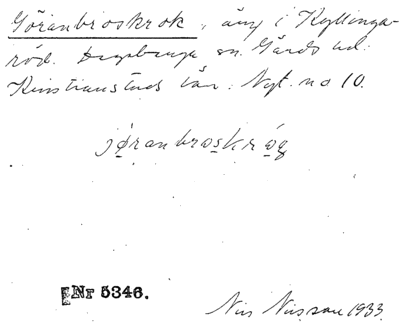 Göranbroskrok, äng i Kyllinga-
röd. Degeberga sn. Gärds hd.
Kristianstads län. Nyt. no 10.
jøranbroskrog
[Nr 5346.
Nils Nilsson 1933